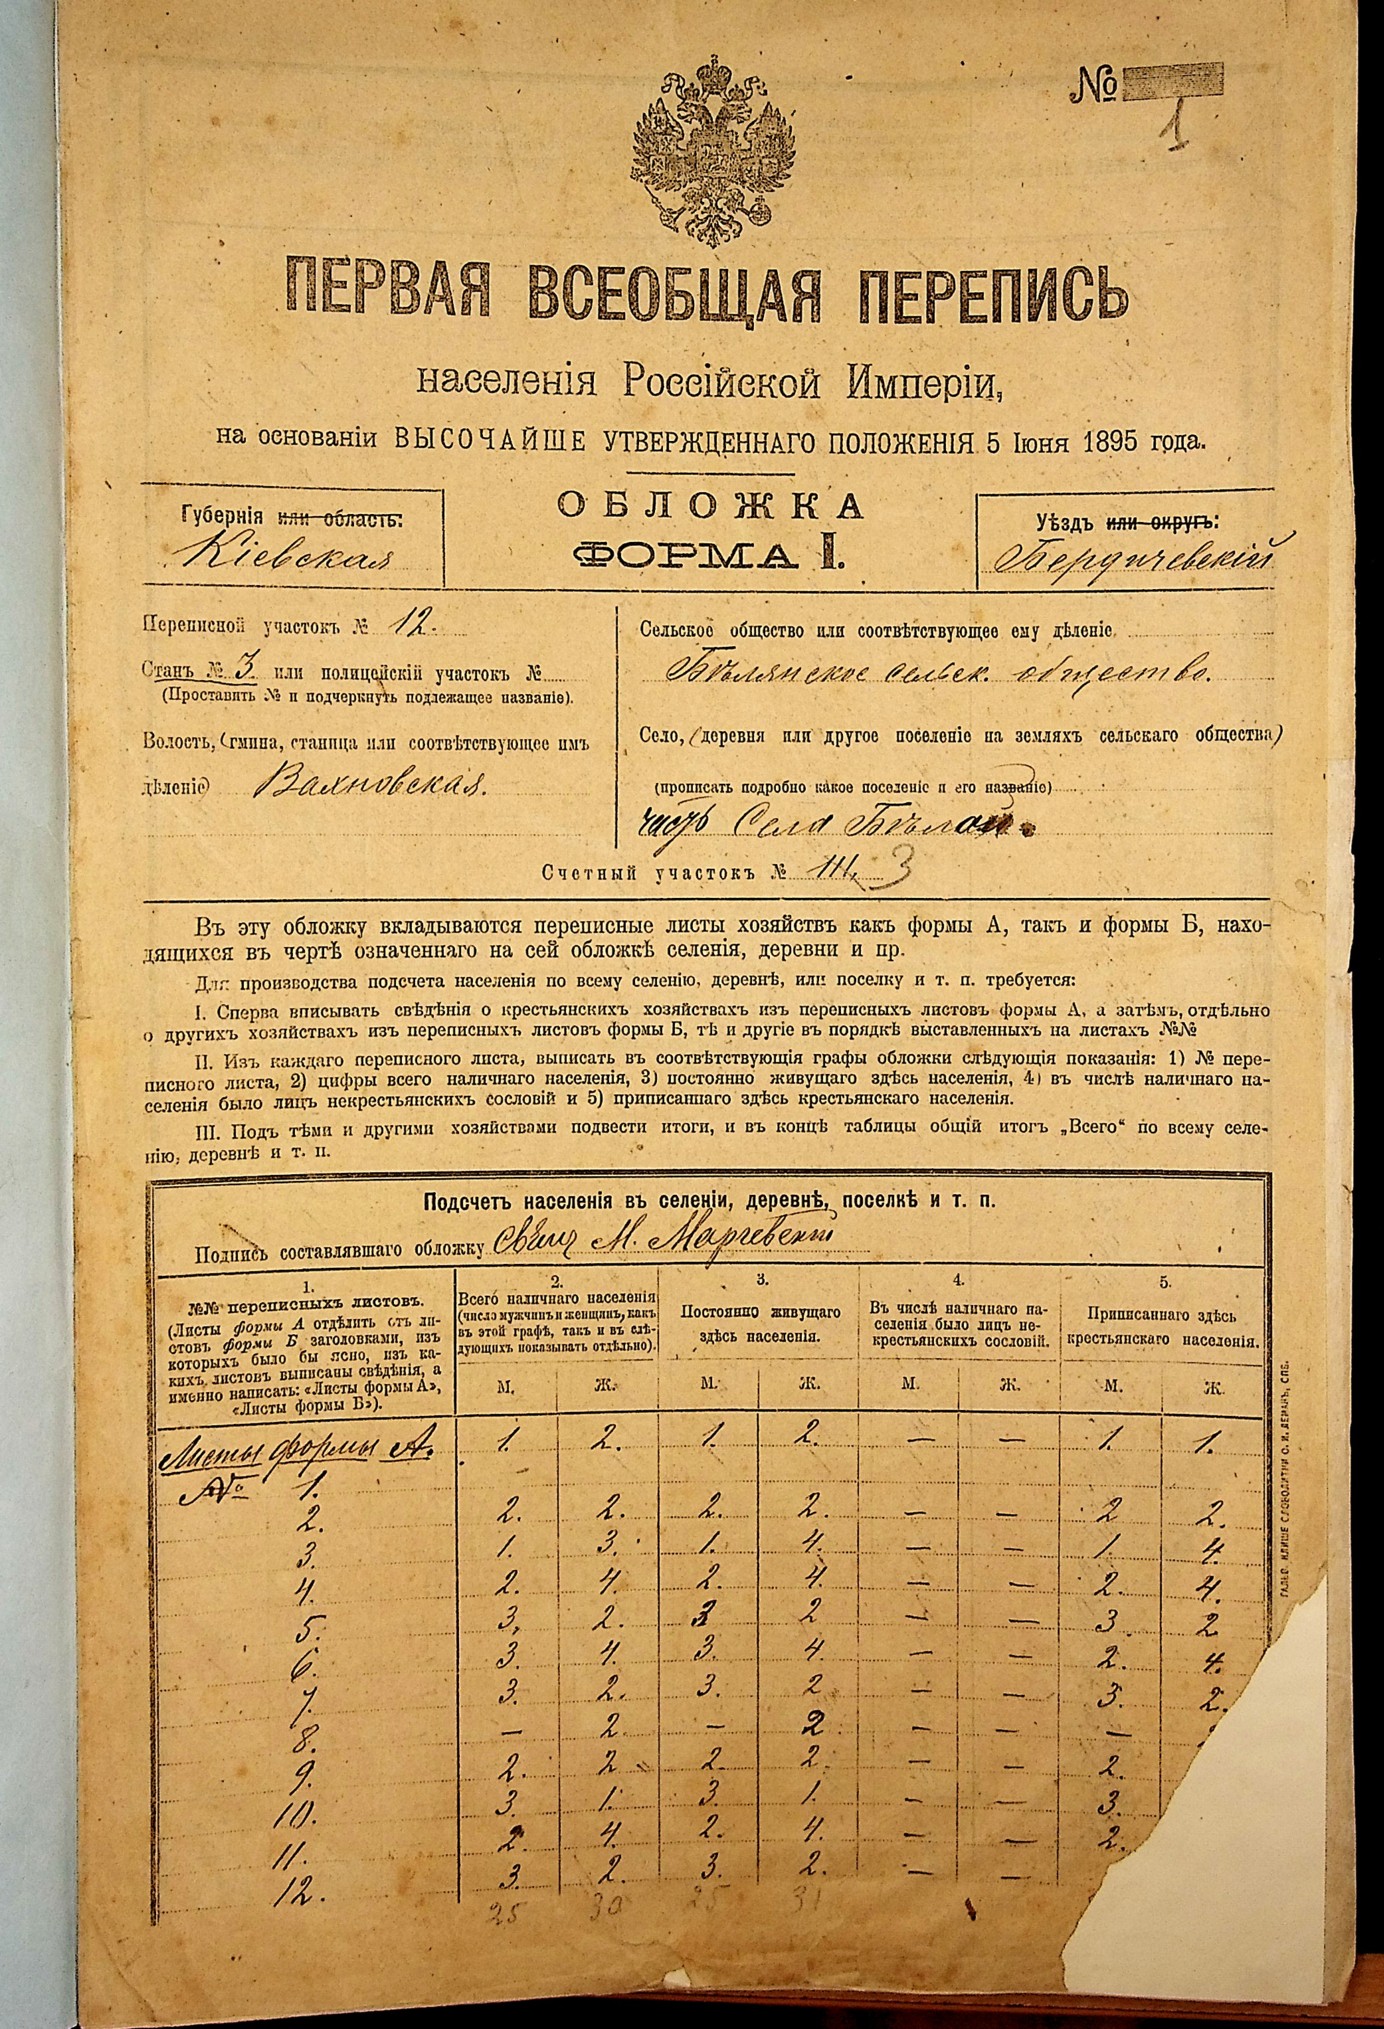 №
1
ПЕРВАЯ ВСЕОБЩАЯ ПЕРЕПИСЬ
населенія Россійской Имперіи,
на основаніи ВЫСОЧАЙШЕ УТВЕРЖДЕННАГО ПОЛОЖЕНІЯ 5 Іюня 1895 года.
ОБЛОЖКА
ФОРМА I.
Губернія или область:
Кіевская
Уѣздъ или округъ:
Бердичевскій
Переписной участокъ № 12.
Станъ № 3 или полицейскій участокъ №
(Проставить № и подчеркнуть подлежащее названіе).
Волость, (гмина, станица или соотвѣтствующее имъ
дѣленіе) Вахновская.
Сельское общество или соотвѣтствующее ему дѣленіе
Бѣлянское сельск. общество.
Село, (деревня или другое поселеніе на земляхъ сельскаго общества)
(прописать подробно какое поселеніе и его названіе)
часть Села Бѣлой.
Счетный участокъ № III. 3
Въ эту обложку вкладываются переписные листы хозяйствъ какъ формы А, такъ и формы Б, нахо-
дящихся въ чертѣ означеннаго на сей обложкѣ селенія, деревни и пр.
Для производства подсчета населенія по всему селенію, деревнѣ, или поселку и т. п. требуется:
I. Сперва вписывать свѣдѣнія о крестьянскихъ хозяйствахъ изъ переписныхъ листовъ формы А, а затѣмъ, отдѣльно
о другихъ хозяйствахъ изъ переписныхъ листовъ формы Б, тѣ и другіе въ порядкѣ выставленныхъ на листахъ №№
II. Изъ каждаго переписного листа, выписать въ соотвѣтствующія графы обложки слѣдующія показанія: 1) № пере-
писного листа, 2) цифры всего наличнаго населенія, 3) постоянно живущаго здѣсь населенія, 4) въ числѣ наличнаго на-
селенія было лицъ некрестьянскихъ сословій и 5) приписаннаго здѣсь крестьянскаго населенія.
III. Подъ тѣми и другими хозяйствами подвести итоги, и въ концѣ таблицы общій итогъ „Всего“ по всему селе-
нію, деревнѣ и т. п.
Подсчетъ населенія въ селеніи, деревнѣ, поселкѣ и т. п.
Подпись составлявшаго обложку М.
1.
№№ переписныхъ листовъ.
(Листы формы А отдѣлить отъ ли-
стовъ формы Б заголовками, изъ
которыхъ было бы ясно, изъ ка-
кихъ листовъ выписаны свѣдѣнія, а
именно написать: «Листы формы А»,
«Листы формы Б»).
2.
Всего наличнаго населенія
(число мужчинъ и женщинъ, какъ
въ этой графѣ, такъ и въ слѣ-
дующихъ показывать отдѣльно).
3.
Постоянно живущаго
здѣсь населенія.
4.
Въ числѣ наличнаго на-
селенія было лицъ не-
крестьянскихъ сословій.
5.
Приписаннаго здѣсь
крестьянскаго населенія.
М. Ж. М. Ж. М. Ж. М. Ж.
Листы формы А. 1. 2. 1. 2. — — 1. 1.
№ 1.
2. 2. 2. 2. 2. — — 2 2.
3. 1. 3. 1. 4. — — 1. 4.
4. 2. 4 2. 4. — — 2. 4.
5. 3. 2. 3 2 — — 3. 2
6. 3. 4. 3. 4. — — 2. 4.
7. 3. 2. 3. 2 — — 3. 2.
8. — 2. — 2 — — —
9. 2. 2 2. 2. — — 2.
10. 3. 1. 3. 1. — — 3.
11. 2. 4. 2. 4. — — 2.
12. 3. 2. 3. 2. — —
25 30 25 31
ГАЛЬВ. КЛИШЕ СЛОВОЛИТНИ О. И. ЛЕМАНЪ, СПБ.